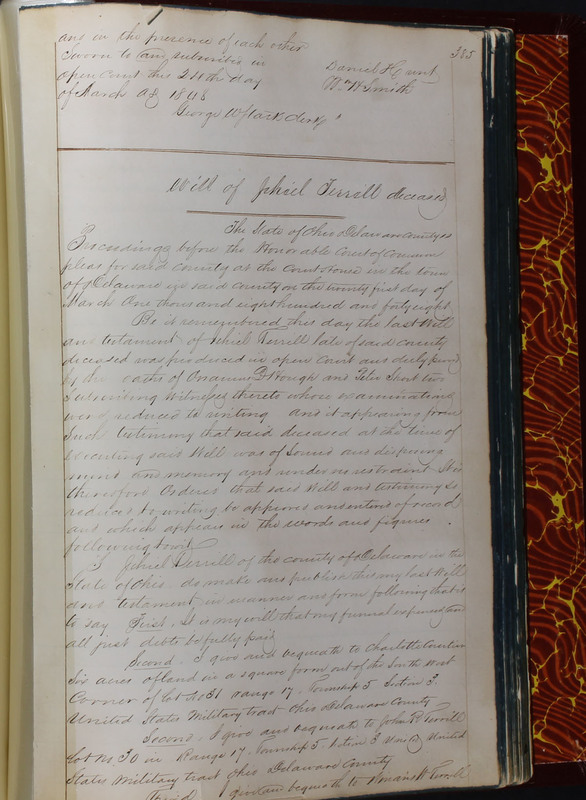 385
and in the presence of each other
Sworn to and subscribed in
open Court this 21th day
Daniel Hunt
of March AD 1848
W. W Smith
George W Stark clerk
Will of Jehiel Terrill deceased
The State of Ohio Delaware County ss
Proceedings before the Honorable Court of Common
pleas for said County at the Court House in the town
of Delaware in said County on the twenty first day of
March One thousand eight hundred and forty eight
Be it remembered this day the last Will
and testament of Jehiel Terrill late of said County
deceased was produced in open Court and duly proved
by the oaths of B Hough and Peter Short two
Subscribing Witnesses thereto whose examinations
were reduced to writing and it appearing from
Such testimony that said deceased at the time of
executing said Will was of Sound and disposing
mind and memory and under no restraint It is
therefore Ordered that said Will and testimony so
reduced to writing be approved and entered of record
and which appears in the words and figures
following towit
I Jehiel Terrill of the county of Delaware in the
State of Ohio do make and publish this my last Will
and testament in manner and form following that is
to say First. It is my will that my funeral expenses and
all just debts be fully paid
Second. I give and bequeath to Charlotte
Six acres of land in a square form out of the South West
Corner of Lot No 31 range 17. Township 5 Section 3
United States Military tract Ohio Delaware County
Second. I give and bequeath to John R Terrill
Lot No. 30 in Range 17. Township 5. Section 3 United
States Military tract Ohio Delaware County
Third give and bequeath to W Terrill